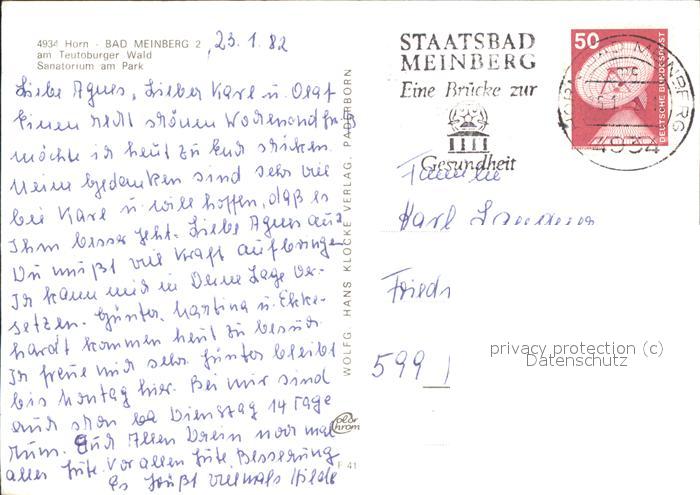 4934 Horn - BAD MEINBERG 2, 23.1.82
am Teutoburger Wald
Sanatorium am Park
Liebe Agnes, Lieber Karl u. Olaf
Einen recht schönen Wochenendgruß
möchte ich heut zu Euch schicken.
Meine Gedanken sind sehr viel
bei Karl u. will hoffen, daß es
Ihm besser geht. Liebe Agnes auch
Du mußt viel Kraft aufbringen
Ich kann mich in Deine Lage ver-
setzen. Günter, Martina u. Ekke-
hardt kommen heut zu Besuch.
Ich freue mich sehr. Günter bleibt
bis Montag hier. Bei mir sind
auch schon ca Dienstag 14 Tage
rum. Euch Allen Drein noch mal
alles Gute. Vor allem Gute Besserung
Es grüßt vielmals Hilde
WOLFG. HANS KLOCKE VERLAG, PADERBORN
Color chrom
F 41
STAATSBAD
MEINBERG
Eine Brücke zur
Gesundheit
50
DEUTSCHE BUNDESPOST
BAD MEINBERG
4934
Familie
Karl
599
privacy protection (c)
Datenschutz